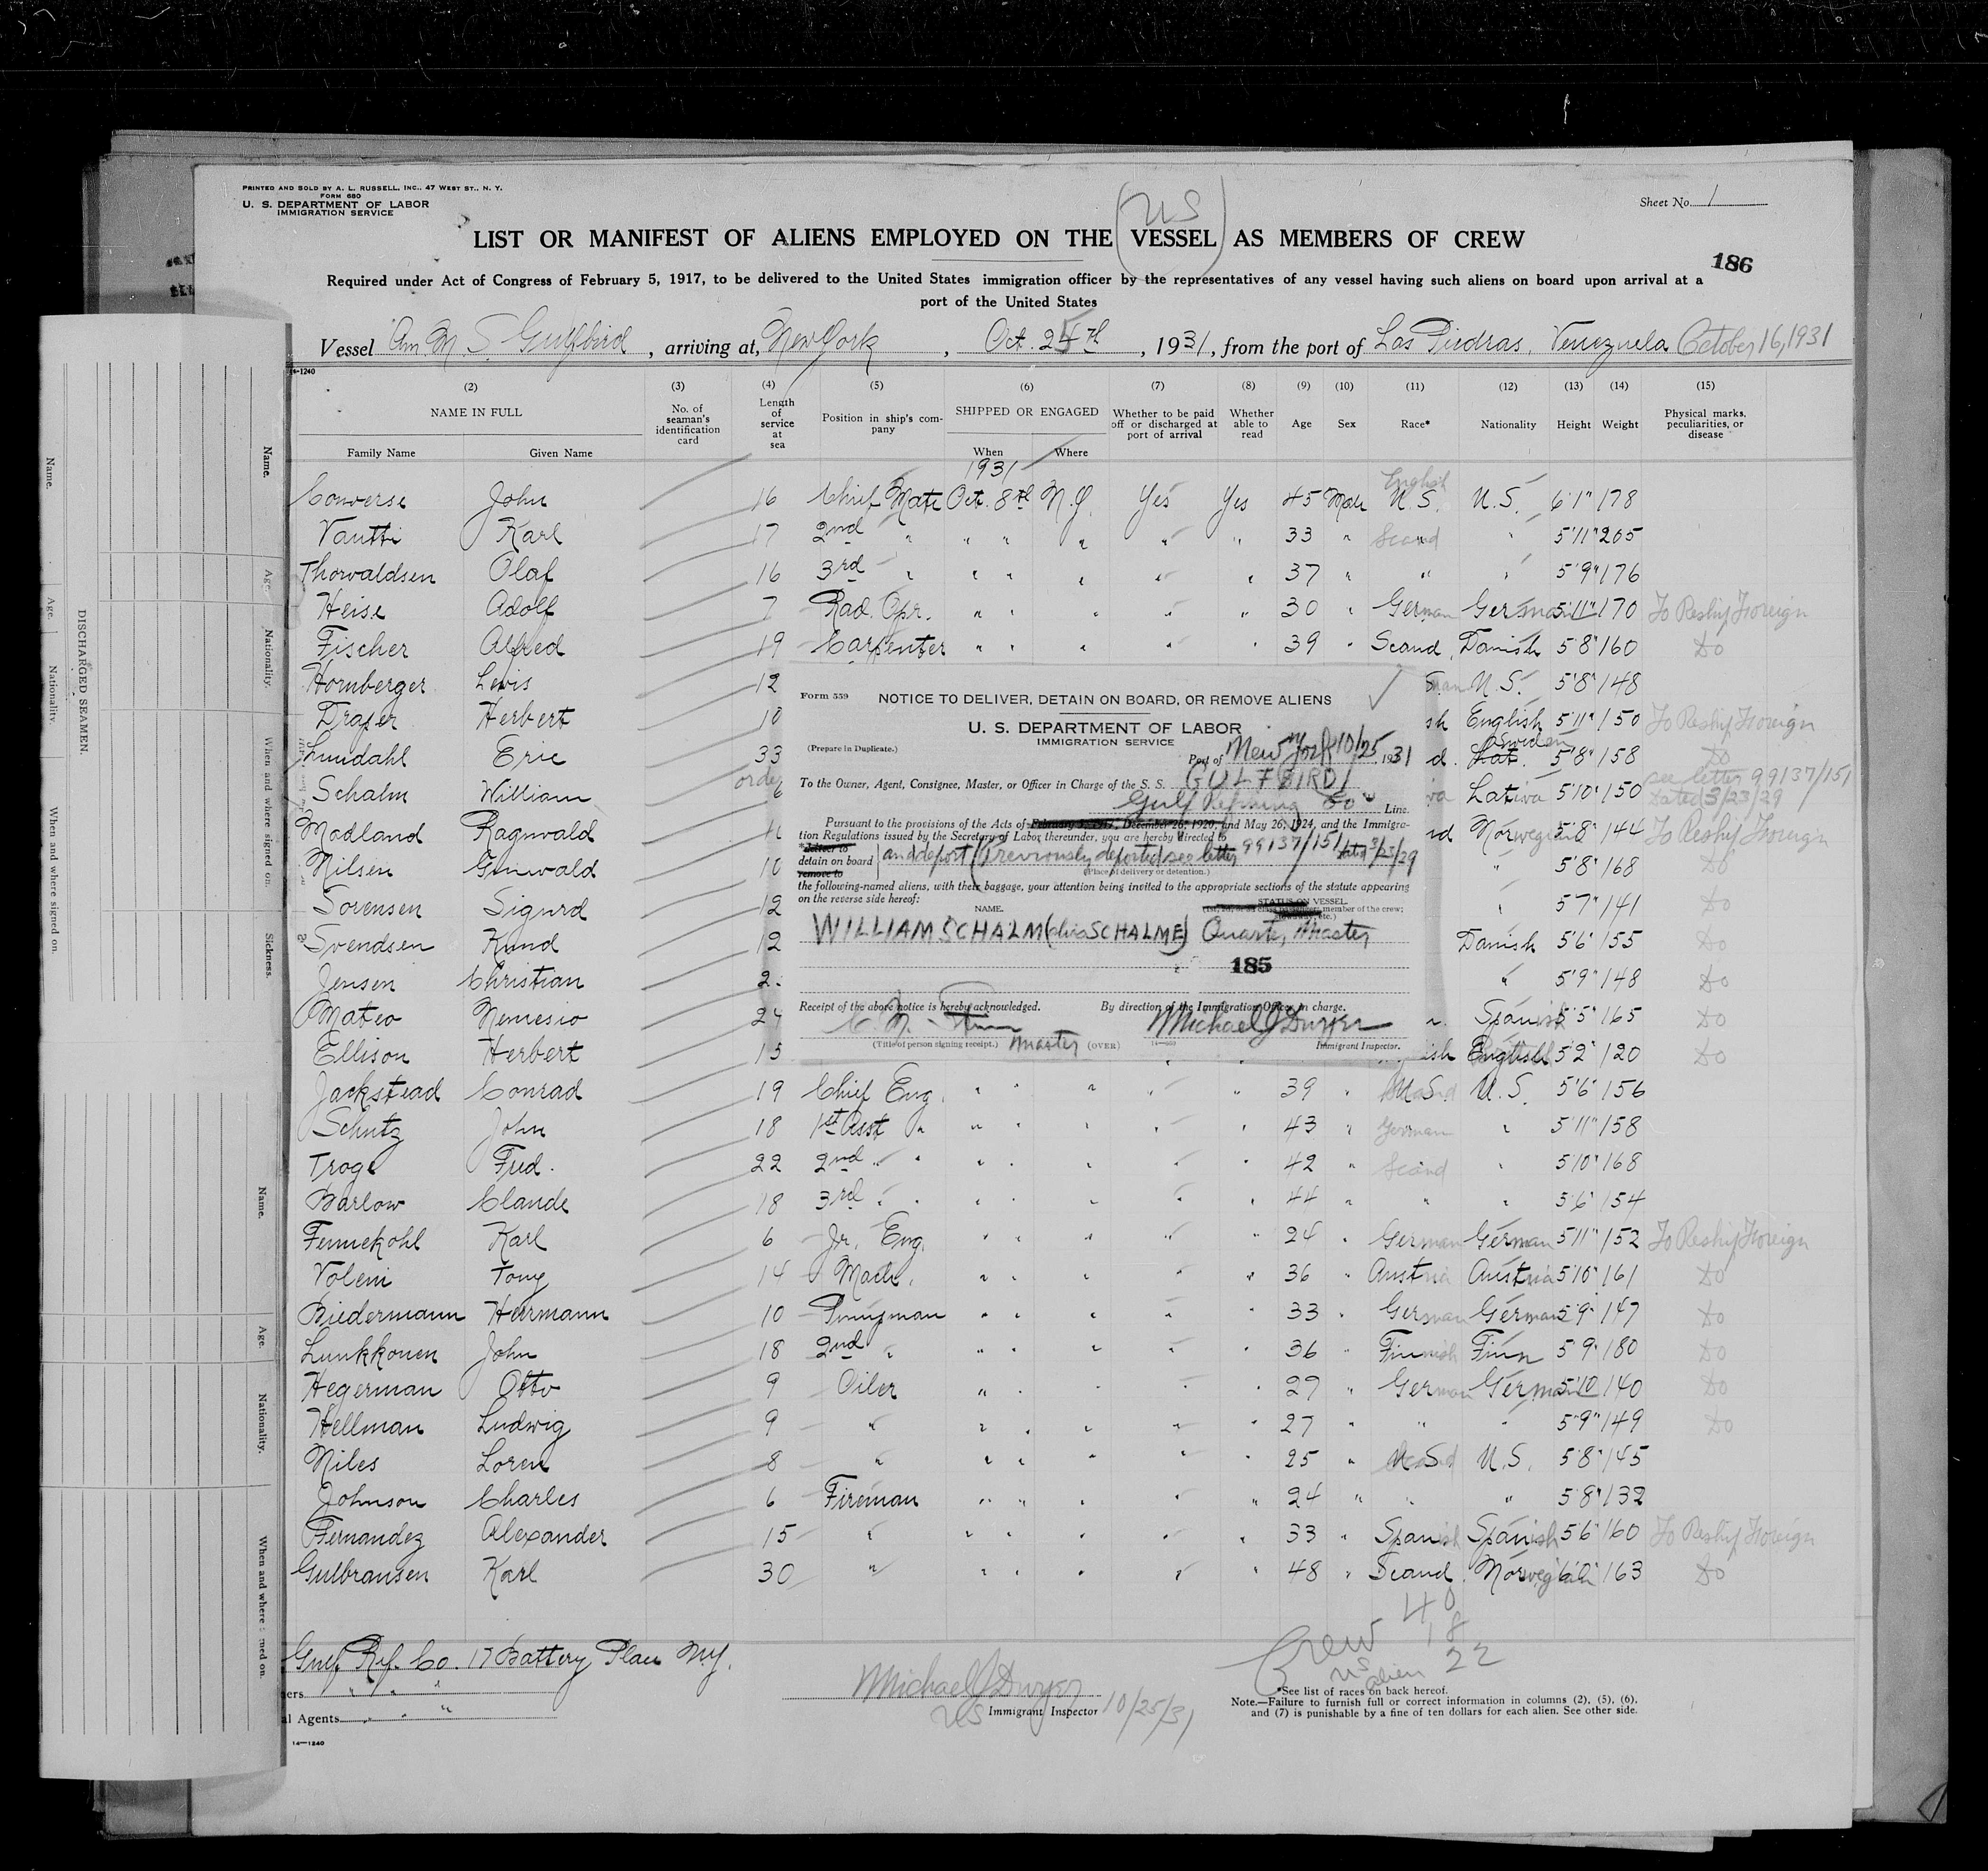 PRINTED AND SOLD BY A. L. RUSSELL, INC., 47 WEST ST., N. Y.
FORM 680
U. S. DEPARTMENT OF LABOR
IMMIGRATION SERVICE
(US)
Sheet No. 1
LIST OR MANIFEST OF ALIENS EMPLOYED ON THE VESSEL AS MEMBERS OF CREW
186
Required under Act of Congress of February 5, 1917, to be delivered to the United States immigration officer by the representatives of any vessel having such aliens on board upon arrival at a
port of the United States
Vessel Am. M. S. Gulfbird, arriving at, New York, Oct. 25th, 1931, from the port of Las Piedras, Venezuela October 16, 1931
14-1240
(2) (3) (4) (5) (6) (7) (8) (9) (10) (11) (12) (13) (14) (15)
NAME IN FULL No. of seaman's identification card Length of service at sea Position in ship's company SHIPPED OR ENGAGED Whether to be paid off or discharged at port of arrival Whether able to read Age Sex Race* Nationality Height Weight Physical marks, peculiarities, or disease
Family Name Given Name When Where
1931
English
Converse John 16 Chief Mate Oct. 8th N.Y. Yes Yes 45 Male U.S. U.S. 6'1" 178
Vautti Karl 17 2nd " " " " " " 33 " Scand " 5'11" 205
Thorvaldsen Olaf 16 3rd " " " " " " 37 " " " 5'9" 176
Heise Adolf 7 Rad. Opr. " " " " " 30 " German German 5'11" 170 To Reship Foreign
Fischer Alfred 19 Carpenter " " " " " 39 " Scand. Danish 5'8" 160 Do
Hornberger Lewis 12 U.S. 5'8" 148
Draper Herbert 10 sh English 5'11" 150 To Reship Foreign
Lundahl Eric 33 d. Swiden 5'8" 158 Do
Schalm William 6 Lativa 5'10" 150 see letter 99137/151 Dated 3/23/29
Madland Ragnvald nd Norwegian 5'8" 144 To Reship Foreign
Nilsen Gunwald 10 " 5'8" 168 Do
Sorensen Sigurd 12 " 5'7" 141 Do
Svendsen Knud 12 Danish 5'6" 155 Do
Jensen Christian 2 " 5'9" 148 Do
Mateo Nemesio 24 Spanish 5'5" 165 Do
Ellison Herbert 15 ish English 5'2" 120 Do
Form 559
NOTICE TO DELIVER, DETAIN ON BOARD, OR REMOVE ALIENS
U. S. DEPARTMENT OF LABOR
IMMIGRATION SERVICE
(Prepare in Duplicate.)
Port of New York 10/25, 1931
To the Owner, Agent, Consignee, Master, or Officer in Charge of the S. S. GULFBIRD
Gulf Refining Co Line.
Pursuant to the provisions of the Acts of February 5, 1917, December 26, 1920, and May 26, 1924, and the Immigra-
tion Regulations issued by the Secretary of Labor thereunder, you are hereby directed to
*deliver to
detain on board and deport (Previously deported see letter 99137/151 dated 3/23/29
remove to
(Place of delivery or detention.)
the following-named aliens, with their baggage, your attention being invited to the appropriate sections of the statute appearing
on the reverse side hereof:
NAME. STATUS ON VESSEL
member of the crew; etc.)
WILLIAM SCHALM (alias SCHALME) Quarter Master
185
Receipt of the above notice is hereby acknowledged. By direction of the Immigration Officer in charge.
Michael J Dwyer
(Title of person signing receipt.) Master (OVER) Immigrant Inspector.
Jackstead Conrad 19 Chief Eng. " " " " " 39 " U.S. U.S. 5'6" 156
Schutz John 18 1st Asst " " " " " " 43 " German " 5'11" 158
Troge Fred. 22 2nd " " " " " " " 42 " Scand " 5'10" 168
Barlow Claude 18 3rd " " " " " " " 44 " " " 5'6" 154
Fennekohl Karl 6 Jr. Eng. " " " " " 24 " German German 5'11" 152 To Reship Foreign
Voleni Tony 14 Mach. " " " " " 36 " Austria Austria 5'10" 161 Do
Biedermann Herrmann 10 Pumpman " " " " " 33 " German German 5'9" 147 Do
Lunkkonen John 18 2nd " " " " " " 36 " Finnish Finn 5'9" 180 Do
Hegerman Otto 9 Oiler " " " " " 27 " German German 5'10 140 Do
Hellman Ludwig 9 " " " " " " 27 " " " 5'9" 149 Do
Niles Loren 8 " " " " " " 25 " U.S. U.S. 5'8" 145
Johnson Charles 6 Fireman " " " " " 24 " " " 5'8" 132
Fernandez Alexander 15 " " " " " " 33 " Spanish Spanish 5'6" 160 To Reship Foreign
Gulbransen Karl 30 " " " " " " 48 " Scand. Norwegian 6'0" 163 Do
Crew 40
US 18
alien 22
Gulf Ref. Co. 17 Battery Place N.Y.
ers " " "
al Agents " " "
Michael J Dwyer
US Immigrant Inspector 10/25/31
*See list of races on back hereof.
Note.—Failure to furnish full or correct information in columns (2), (5), (6),
and (7) is punishable by a fine of ten dollars for each alien. See other side.
14—1240
DISCHARGED SEAMEN.
Name. Age. Nationality. When and where signed on.
Name. Age. Nationality. When and where signed on. Sickness.
Name. Age. Nationality. When and where signed on.